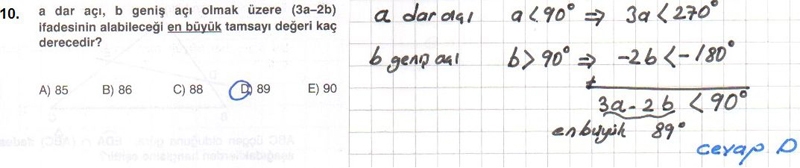 10. a dar açı, b geniş açı olmak üzere (3a–2b)
ifadesinin alabileceği en büyük tamsayı değeri kaç
derecedir?
A) 85 B) 86 C) 88 D) 89 E) 90
a dar açı a < 90° ⇒ 3a < 270°
b geniş açı b > 90° ⇒ -2b < -180°
+
3a - 2b < 90°
en büyük 89°
cevap D